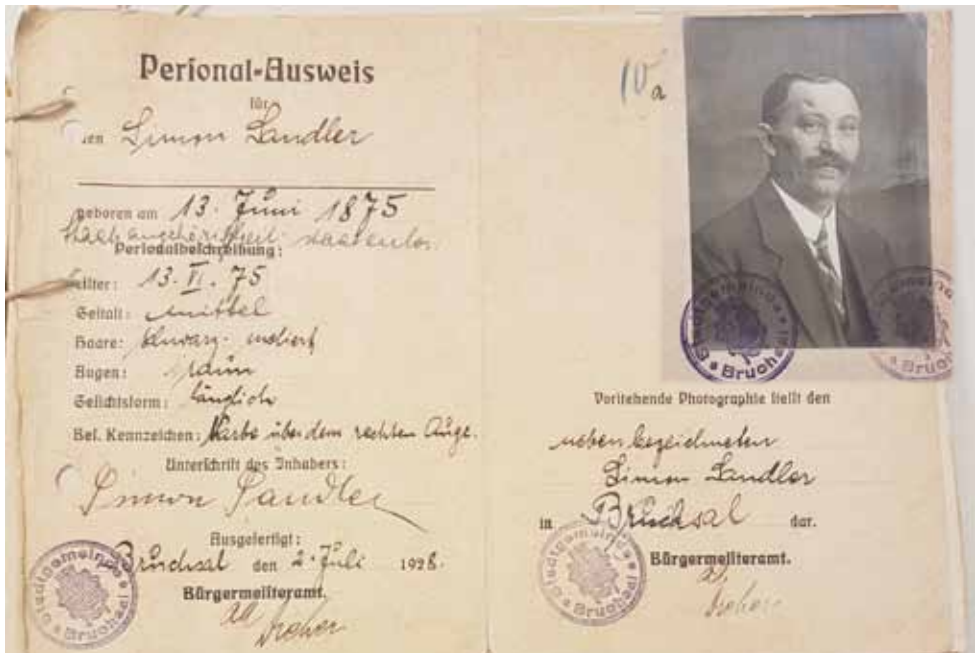 Personal-Ausweis
für
den Simon Sandler
geboren am 13. Juni 1875
Staatsangehörigkeit: staatenlos.
Personalbeschreibung:
Alter: 13. VI. 75
Gestalt: mittel
Haare: schwarz-meliert
Augen: braun
Gesichtsform: länglich
Bes. Kennzeichen: Narbe über dem rechten Auge.
Unterschrift des Inhabers:
Simon Sandler
Ausgefertigt:
Bruchsal den 2. Juli 1928.
Bürgermeisteramt.
Dreher
Stadtgemeinde Bruchsal
10a
Stadtgemeinde Bruchsal
Stadtgemeinde Bruchsal
Vorstehende Photographie stellt den
nebenbezeichneten
Simon Sandler
in Bruchsal dar.
Bürgermeisteramt.
Dreher
Stadtgemeinde Bruchsal